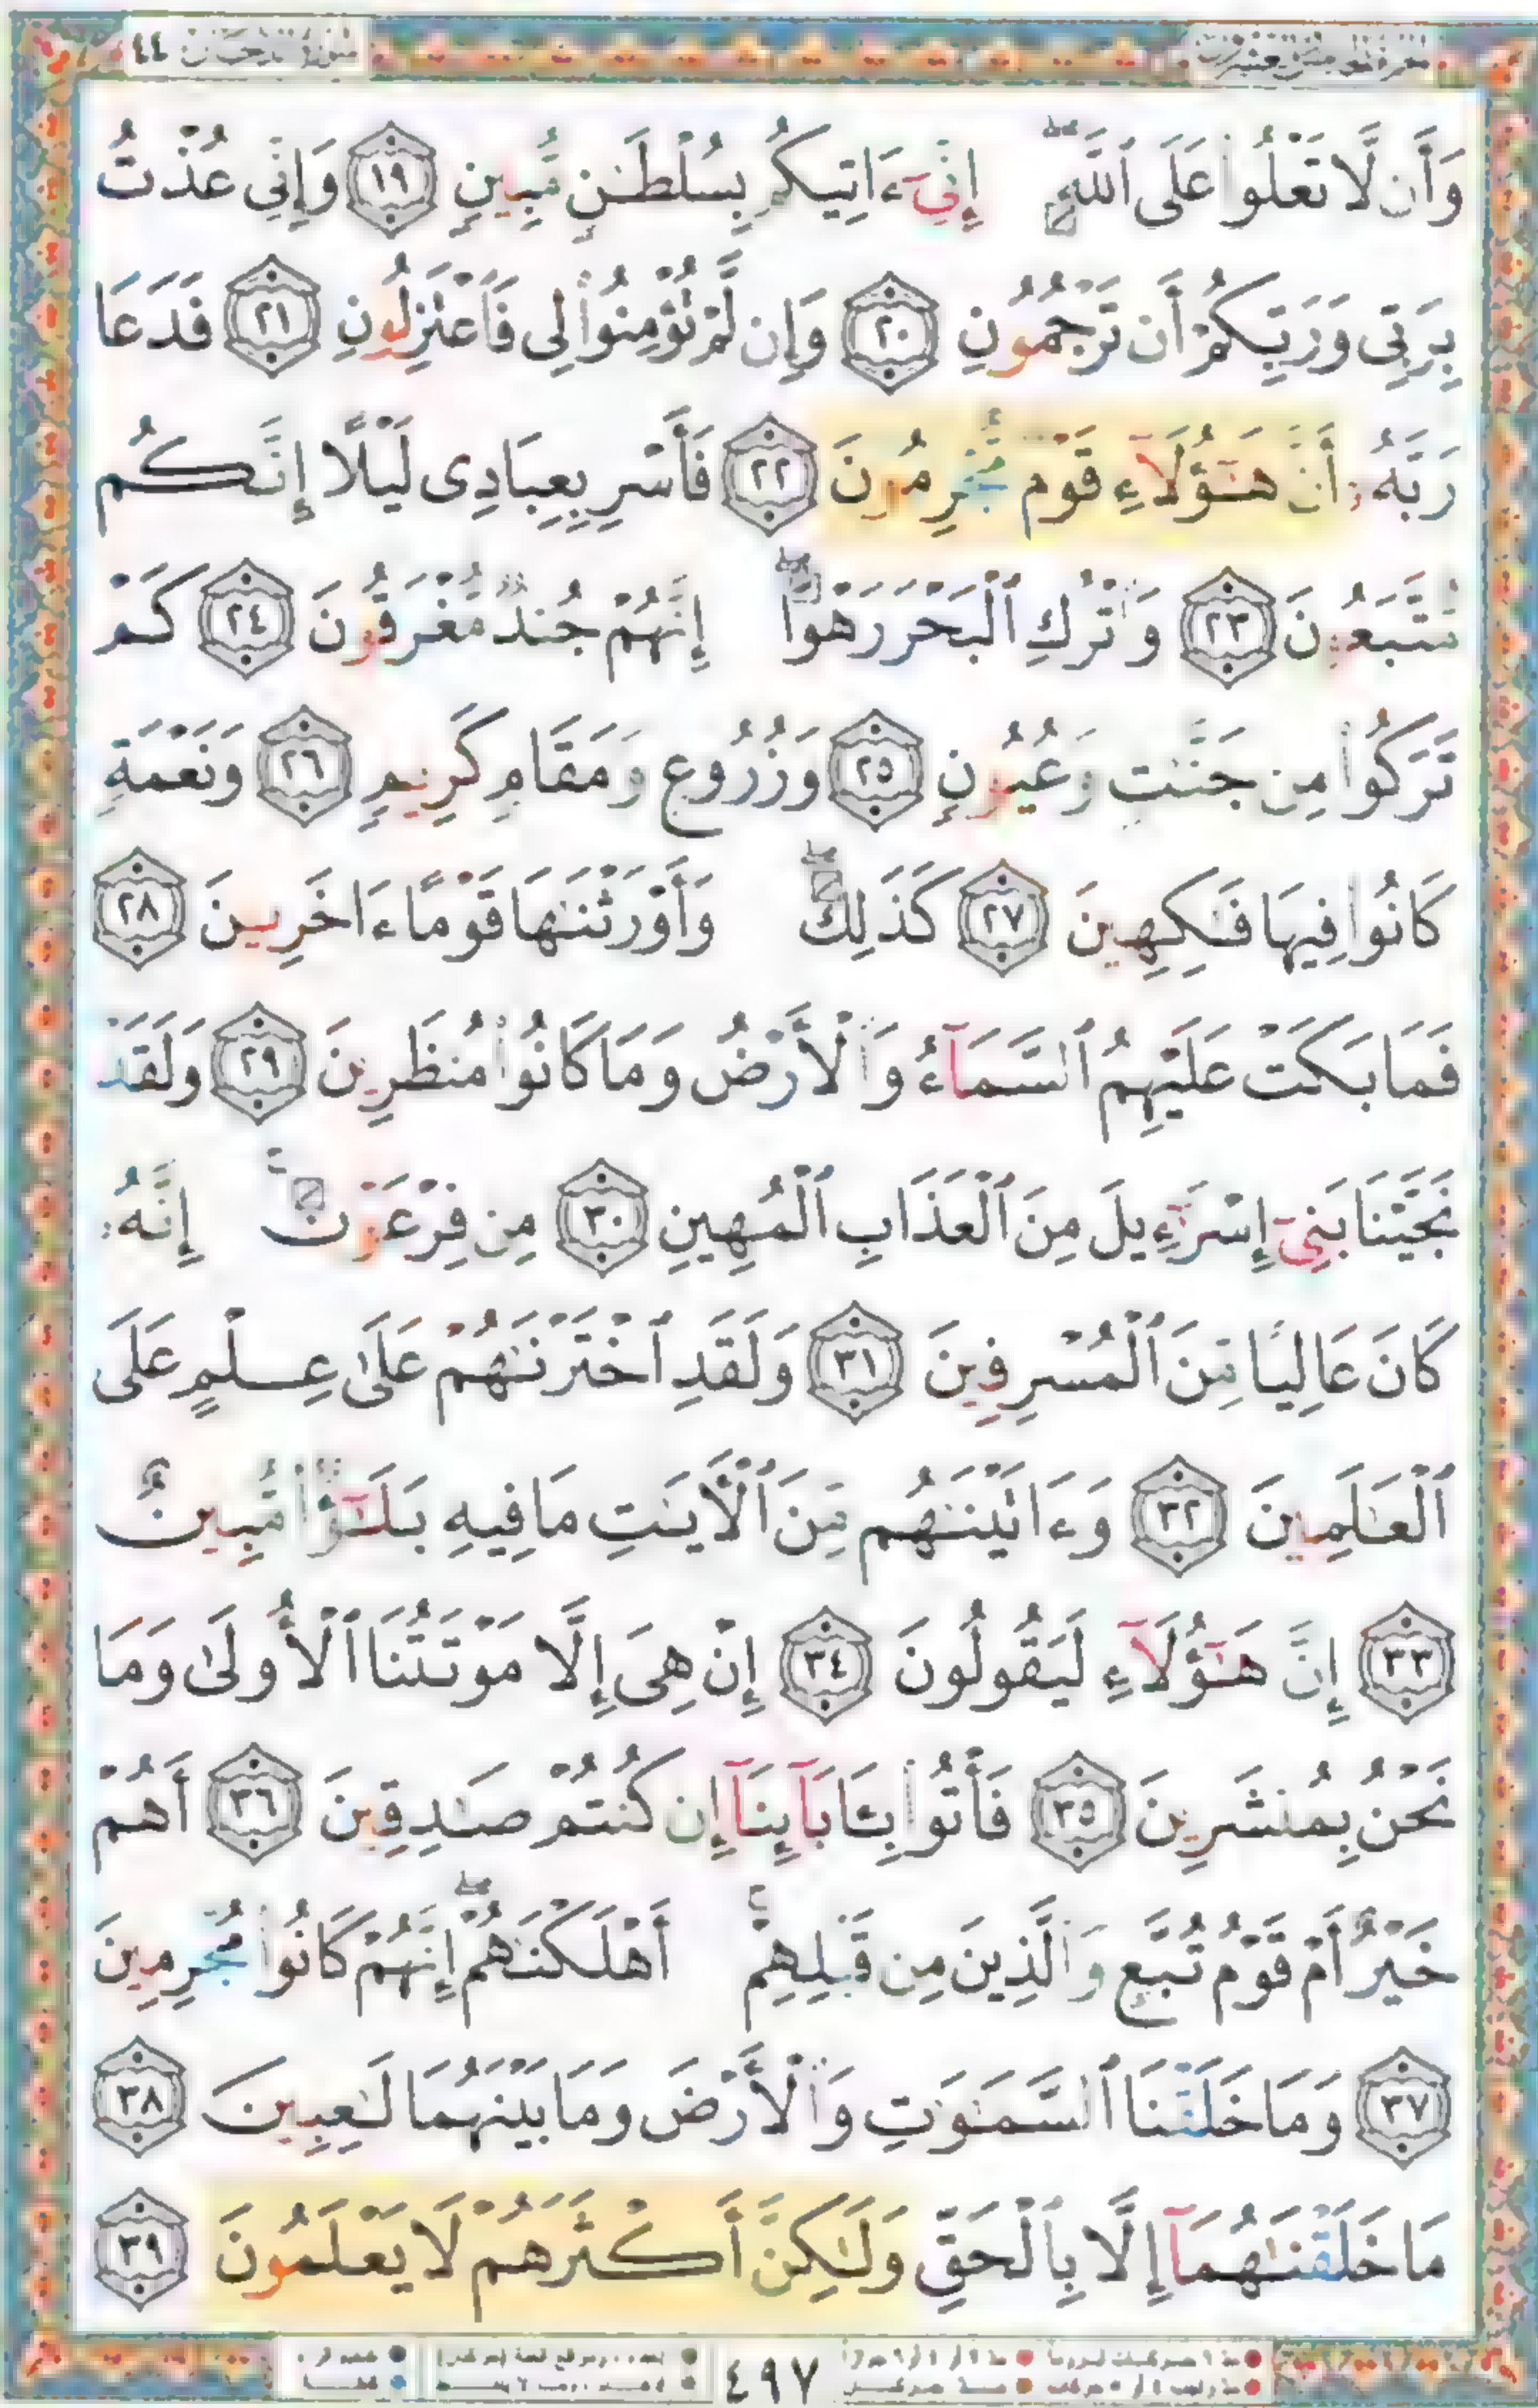 سورة الدخان ٤٤
وَأَن لَّا تَعْلُوا۟ عَلَى ٱللَّهِ ۖ إِنِّىٓ ءَاتِيكُم بِسُلْطَـٰنٍ مُّبِينٍ ١٩ وَإِنِّى عُذْتُ
بِرَبِّى وَرَبِّكُمْ أَن تَرْجُمُونِ ٢٠ وَإِن لَّمْ تُؤْمِنُوا۟ لِى فَٱعْتَزِلُونِ ٢١ فَدَعَا
رَبَّهُۥٓ أَنَّ هَـٰٓؤُلَآءِ قَوْمٌ مُّجْرِمُونَ ٢٢ فَأَسْرِ بِعِبَادِى لَيْلًا إِنَّكُم
مُّتَّبَعُونَ ٢٣ وَٱتْرُكِ ٱلْبَحْرَ رَهْوًا ۖ إِنَّهُمْ جُندٌ مُّغْرَقُونَ ٢٤ كَمْ
تَرَكُوا۟ مِن جَنَّـٰتٍ وَعُيُونٍ ٢٥ وَزُرُوعٍ وَمَقَامٍ كَرِيمٍ ٢٦ وَنَعْمَةٍ
كَانُوا۟ فِيهَا فَـٰكِهِينَ ٢٧ كَذَٰلِكَ ۖ وَأَوْرَثْنَـٰهَا قَوْمًا ءَاخَرِينَ ٢٨
فَمَا بَكَتْ عَلَيْهِمُ ٱلسَّمَآءُ وَٱلْأَرْضُ وَمَا كَانُوا۟ مُنظَرِينَ ٢٩ وَلَقَدْ
نَجَّيْنَا بَنِىٓ إِسْرَٰٓءِيلَ مِنَ ٱلْعَذَابِ ٱلْمُهِينِ ٣٠ مِن فِرْعَوْنَ ۚ إِنَّهُۥ
كَانَ عَالِيًا مِّنَ ٱلْمُسْرِفِينَ ٣١ وَلَقَدِ ٱخْتَرْنَـٰهُمْ عَلَىٰ عِلْمٍ عَلَى
ٱلْعَـٰلَمِينَ ٣٢ وَءَاتَيْنَـٰهُم مِّنَ ٱلْـَٔايَـٰتِ مَا فِيهِ بَلَـٰٓؤٌا۟ مُّبِينٌ
٣٣ إِنَّ هَـٰٓؤُلَآءِ لَيَقُولُونَ ٣٤ إِنْ هِىَ إِلَّا مَوْتَتُنَا ٱلْأُولَىٰ وَمَا
نَحْنُ بِمُنشَرِينَ ٣٥ فَأْتُوا۟ بِـَٔابَآئِنَآ إِن كُنتُمْ صَـٰدِقِينَ ٣٦ أَهُمْ
خَيْرٌ أَمْ قَوْمُ تُبَّعٍ وَٱلَّذِينَ مِن قَبْلِهِمْ ۚ أَهْلَكْنَـٰهُمْ ۖ إِنَّهُمْ كَانُوا۟ مُجْرِمِينَ
٣٧ وَمَا خَلَقْنَا ٱلسَّمَـٰوَٰتِ وَٱلْأَرْضَ وَمَا بَيْنَهُمَا لَـٰعِبِينَ ٣٨
مَا خَلَقْنَـٰهُمَآ إِلَّا بِٱلْحَقِّ وَلَـٰكِنَّ أَكْثَرَهُمْ لَا يَعْلَمُونَ ٣٩
٤٩٧